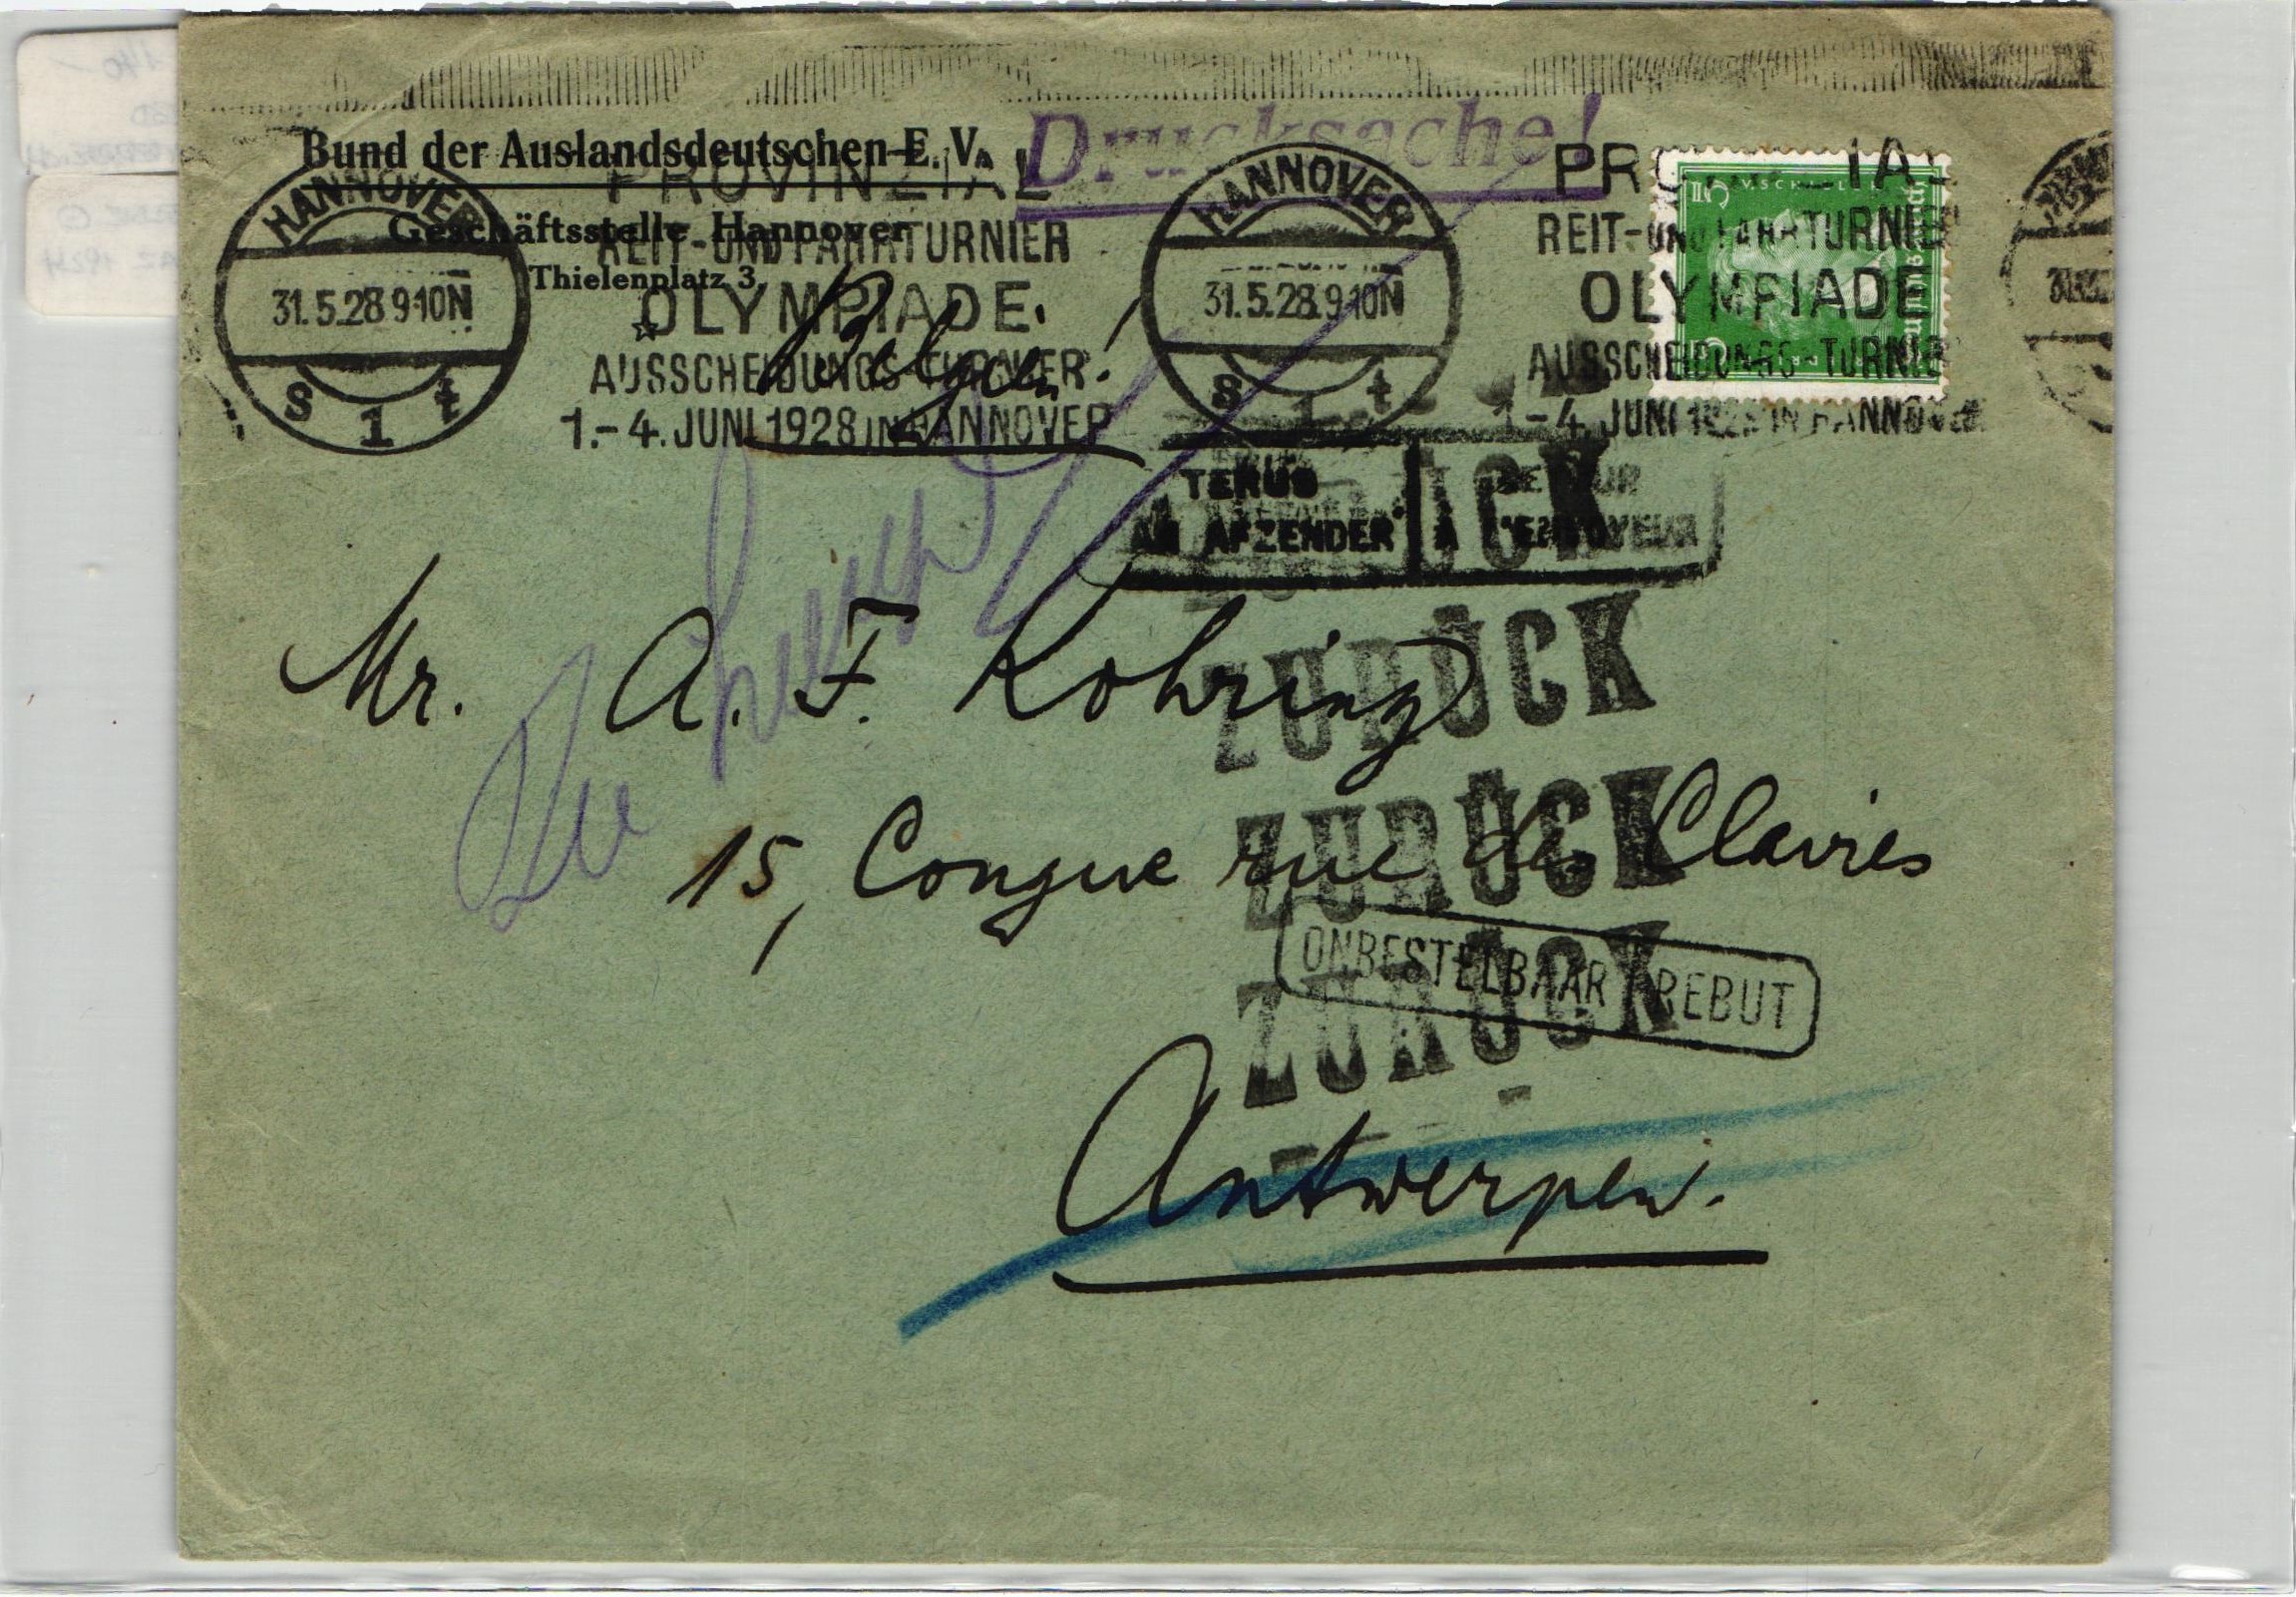 Bund der Auslandsdeutschen E. V.
Geschäftsstelle Hannover
Thielenplatz 3.
Drucksache!
HANNOVER
31.5.28.9-10N
S 1 t
PROVINZIAL
REIT- UND FAHRTURNIER
OLYMPIADE
AUSSCHEIDUNGS-TURNIER
1.-4. JUNI 1928 IN HANNOVER
HANNOVER
31.5.28.9-10N
S 1 t
PROVINZIAL
REIT- UND FAHRTURNIER
OLYMPIADE
AUSSCHEIDUNGS-TURNIER
1.-4. JUNI 1928 IN HANNOVER
5
V. SCHILLER
Deutsches Reich
Belgien!
Zurück
TERUG
AAN AFZENDER
RETOUR
A L'ENVOYEUR
ZURÜCK
Mr. A. F. Kohring
ZURÜCK
15, Longue rue des Claires
ZURÜCK
ONBESTELBAAR REBUT
ZURÜCK
Antwerpen.